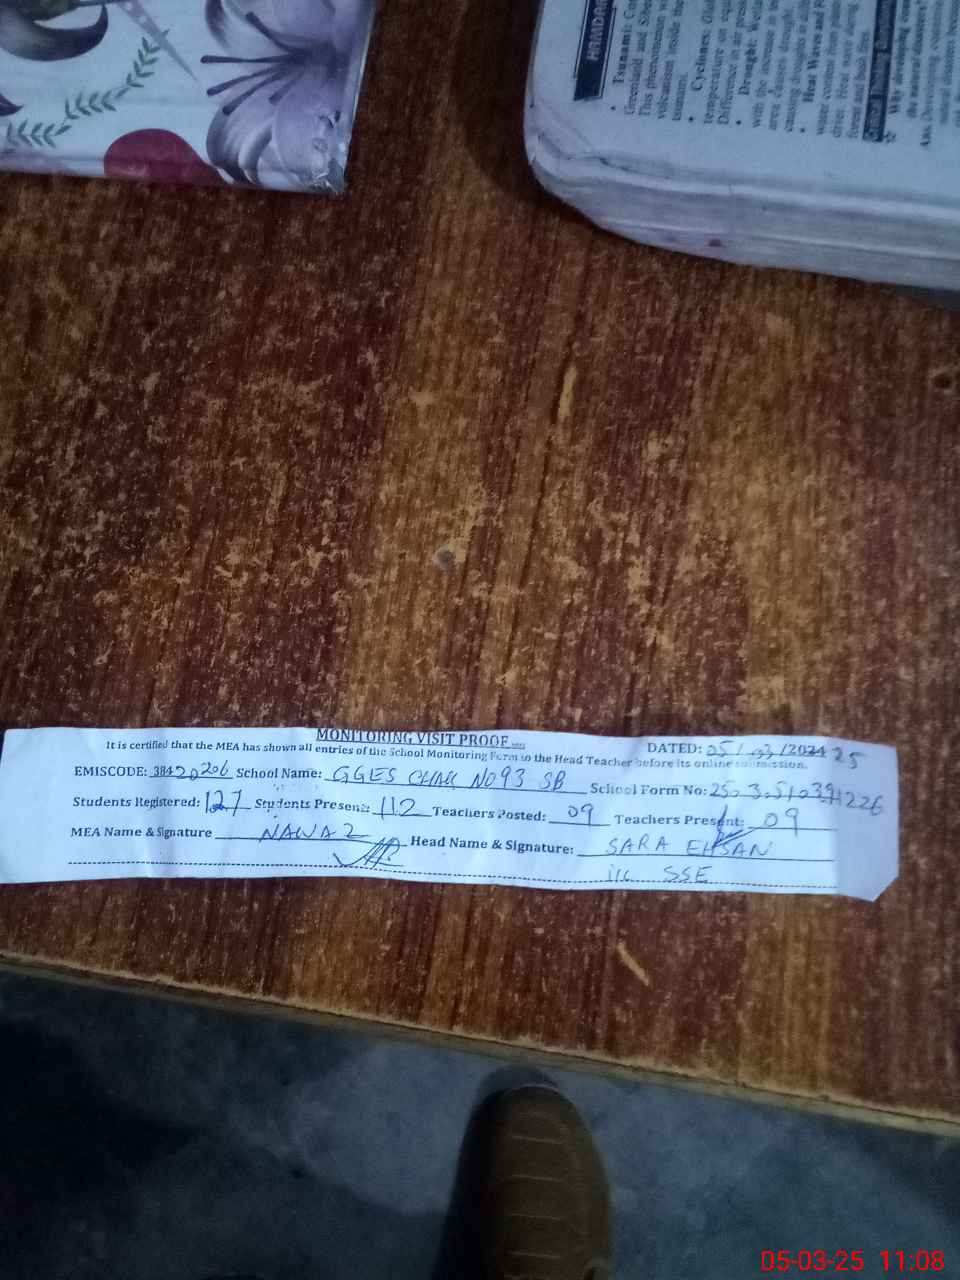 HAMDAR
• Tsunami: Co
Greenland and Sibe
This phenomenon w
volcanism inside the
tsunami.
• Cyclones: Glo
temperature on equ
Difference in air pres
• Drought:
with the increase in te
area causes drough
causing droughts in
• Heat Wave and F
water content from plan
dries. Heat wave during
forest and bush fires.
Why developing count
the natural disasters?
Ans. Developing countries
natural disasters because
MONITORING VISIT PROOF
DATED: 05/03/2024 25
It is certified that the MEA has shown all entries of the School Monitoring Form to the Head Teacher before its online submission.
EMISCODE: 38420206 School Name: GGES CHAK NO 93 SB School Form No:
Students Registered: 127 Students Present: 112 Teachers Posted: 09 Teachers Present: 09
MEA Name & Signature NAWAZ Head Name & Signature: SARA EHSAN
i/c SSE
05-03-25 11:08